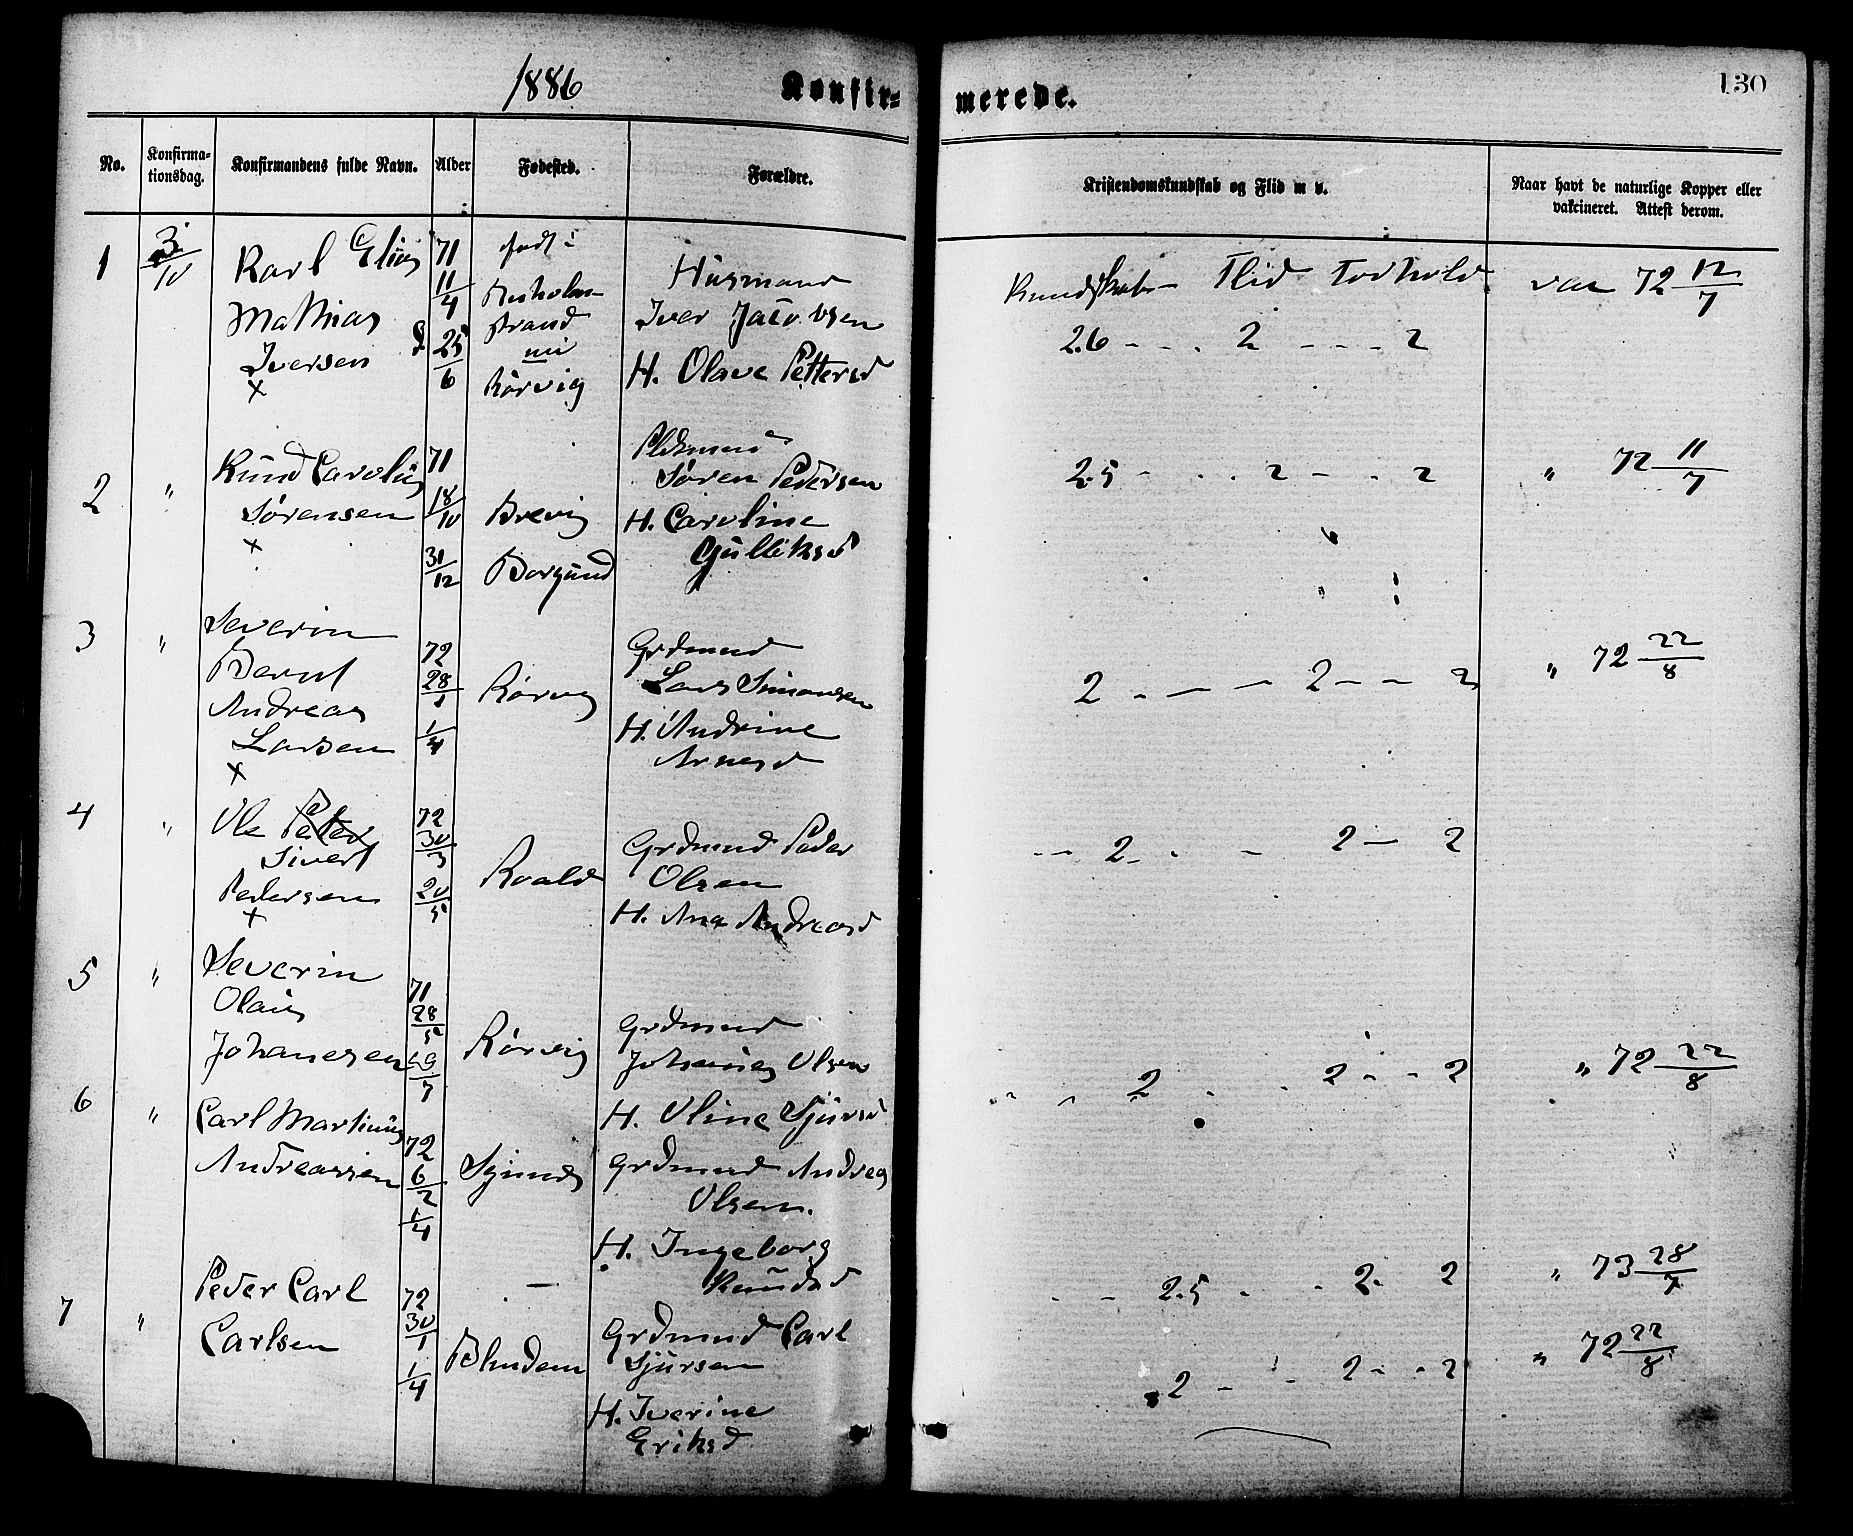 1886
Konfir=
merede.
130
No.
Konfirma-
tionsdag.
Konfirmandens fulde Navn.
Alder
Fødested.
Forældre.
Kristendomskundskab og Flid m v.
Naar havt de naturlige Kopper eller
vakcineret. Attest derom.
1
3/10
Karl Elias
Mathias
Iversen
x
71
11/4
25/6
født i
strand
Rørvig
Husmand
Iver Jacobsen
H. Olave Pettersd
Kundskab - Flid Forhold
2.6 - - . 2 - - - 2
vac 72 12/7
2
"
Knud Carolus
Sørensen
x
71
18/10
31/12
Brevig
Borgund
Søren Pedersen
H. Caroline
Gulliksd
2.5 - . . 2 - . . 2
" 72 11/7
3
"
Severin
Bernt
Andreas
Larsen
x
72
28/1
1/4
Rørvig
Grdmand
Lars Simonsen
H. Andrine
Arnesd
2 - — — 2 - - 2
" 72 22/8
4
"
Ole Peter
Sivert
Pedersen
x
72
30/3
20/5
Roald
Grdmand Peder
Olsen
H. Ana Andreasd
- - 2 - . - 2 — 2
5
"
Severin
Olaus
Johanesen
71
28/5
19/7
Rørvig
Grdmand
Johannes Olsen
H. Oline Sjursd
2 . . 2 - - 2
" 72 22/8
6
"
Carl Martinus
Andreassen
72
6/2
1/4
Synnes
Grdmand Andreas
Olsen.
H. Ingeborg
Knudsd
- - 2.5 - - 2. 2
" 73 28/7
7
"
Peder Carl
Carlsen
72
30/1
1/4
Blindem
Grdmand Carl
Sjursen
H. Iverine
Eriksd.
2 - - 2 - - 2
" 72 22/8